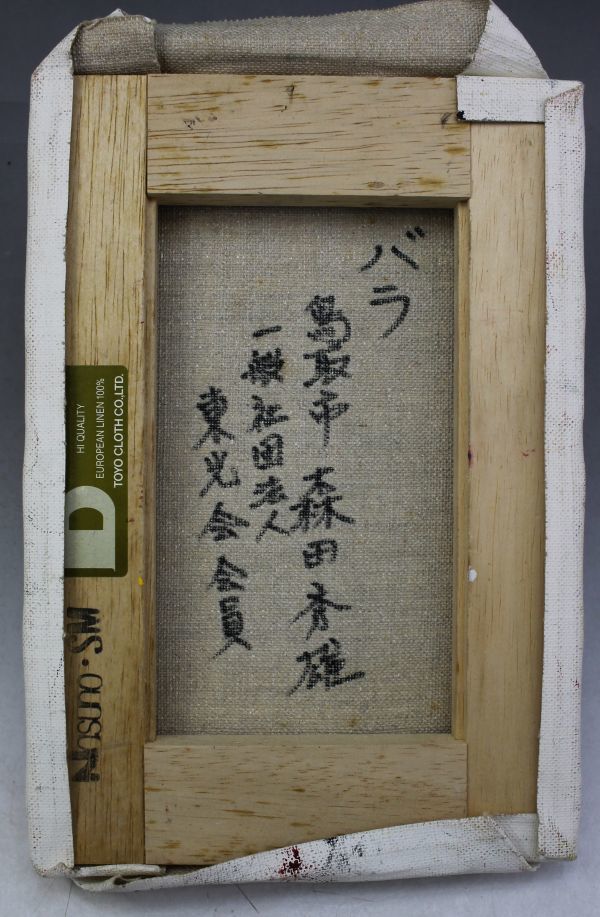 バラ
鳥取市 森田秀雄
一般社団法人
東光会会員
HI QUALITY
EUROPEAN LINEN 100%
TOYO CLOTH CO.,LTD.
D
Nasuno・SM